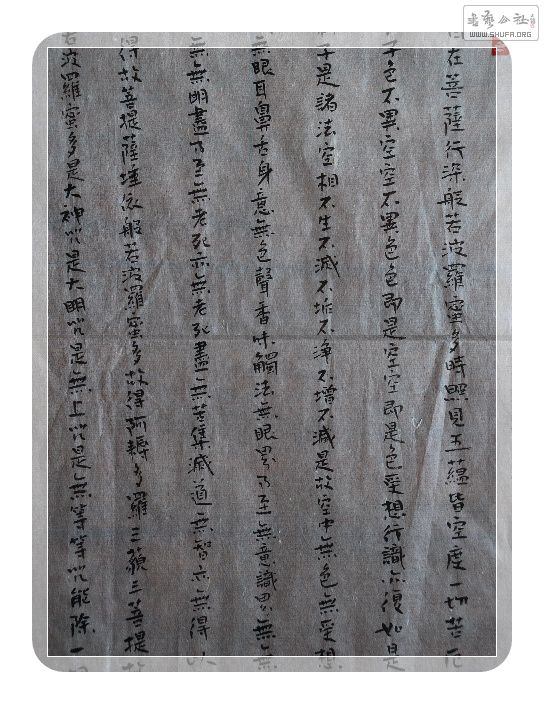 在菩薩行深般若波羅蜜多時照見五蘊皆空度一切苦厄
子色不異空空不異色色即是空空即是色受想行識亦復如是
子是諸法空相不生不滅不垢不淨不增不減是故空中無色無受想
無眼耳鼻舌身意無色聲香味觸法無眼界乃至無意識界無無
無無明盡乃至無老死亦無老死盡無苦集滅道無智亦無得以
得故菩提薩埵依般若波羅蜜多故得阿耨多羅三藐三菩提
波羅蜜多是大神咒是大明咒是無上咒是無等等咒能除一
書藝公社
WWW.SHUFA.ORG